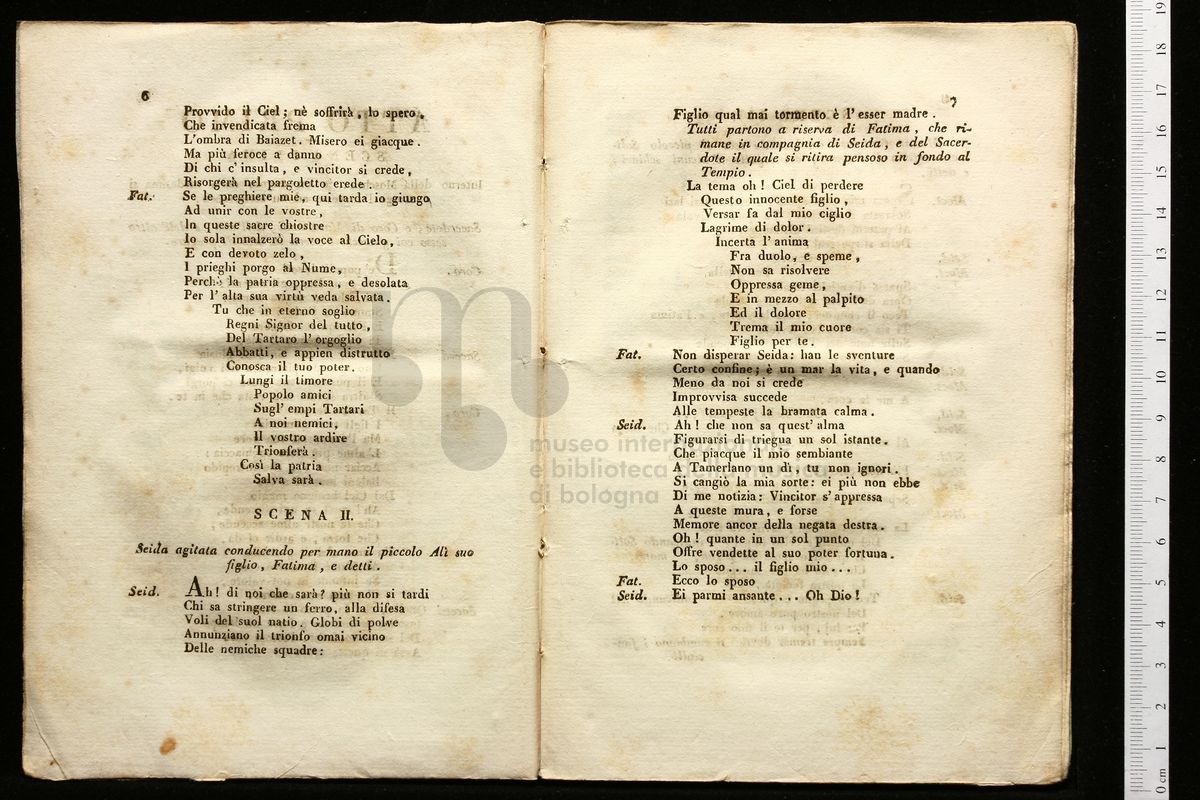 6
Provvido il Ciel; nè soffrirà, lo spero.
Che invendicata frema
L'ombra di Baiazet. Misero ei giacque.
Ma più feroce a danno
Di chi c'insulta, e vincitor si crede,
Risorgerà nel pargoletto erede.
Fat. Se le preghiere mie, qui tarda io giungo
Ad unir con le vostre,
In queste sacre chiostre
Io sola innalzerò la voce al Cielo,
E con devoto zelo,
I prieghi porgo al Nume,
Perchè la patria oppressa, e desolata
Per l'alta sua virtù veda salvata.
Tu che in eterno soglio
Regni Signor del tutto,
Del Tartaro l'orgoglio
Abbatti, e appien distrutto
Conosca il tuo poter.
Lungi il timore
Popolo amici
Sugl'empi Tartari
A noi nemici,
Il vostro ardire
Trionferà.
Così la patria
Salva sarà.
SCENA II.
Seida agitata conducendo per mano il piccolo Alì suo
figlio, Fatima, e detti.
Seid. Ah! di noi che sarà? più non si tardi
Chi sa stringere un ferro, alla difesa
Voli del suol natio. Globi di polve
Annunziano il trionfo omai vicino
Delle nemiche squadre:
7
Figlio qual mai tormento è l'esser madre.
Tutti partono a riserva di Fatima, che ri-
mane in compagnia di Seida, e del Sacer-
dote il quale si ritira pensoso in fondo al
Tempio.
La tema oh! Ciel di perdere
Questo innocente figlio,
Versar fa dal mio ciglio
Lagrime di dolor.
Incerta l'anima
Fra duolo, e speme,
Non sa risolvere
Oppressa geme,
E in mezzo al palpito
Ed il dolore
Trema il mio cuore
Figlio per te.
Fat. Non disperar Seida: han le sventure
Certo confine; è un mar la vita, e quando
Meno da noi si crede
Improvvisa succede
Alle tempeste la bramata calma.
Seid. Ah! che non sa quest'alma
Figurarsi di triegua un sol istante.
Che piacque il mio sembiante
A Tamerlano un dì, tu non ignori.
Si cangiò la mia sorte: ei più non ebbe
Di me notizia: Vincitor s'appressa
A queste mura, e forse
Memore ancor della negata destra.
Oh! quante in un sol punto
Offre vendette al suo poter fortuna.
Lo sposo... il figlio mio...
Fat. Ecco lo sposo
Seid. Ei parmi ansante... Oh Dio!
museo internazionale
e biblioteca della musica
di bologna
0 cm 1 2 3 4 5 6 7 8 9 10 11 12 13 14 15 16 17 18 19